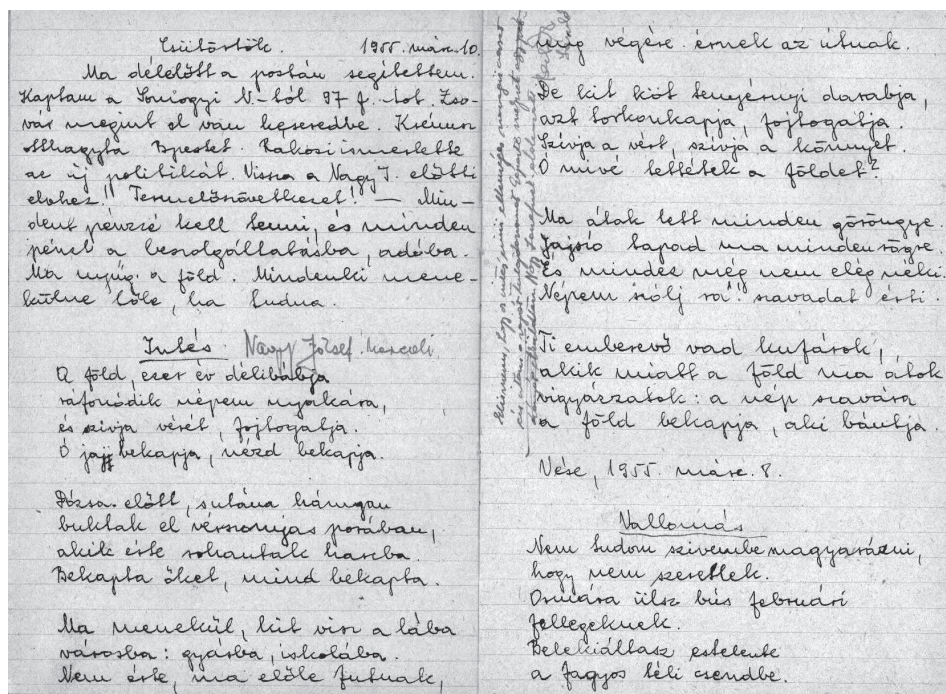 Csütörtök. 1955. márc. 10.
Ma délelőtt a postán segítettem.
Kaptam a Somogyi N-től 97 f.-tot. Zso-
vár megint el van keseredve. Krémer
otthagyta Bpestet. Rákosi ismertette
az új politikát. Vissza a Nagy I. előtti
elvhez! Termelőszövetkezet! — Min-
dent pénzzé kell tenni, és minden
pénzt a beszolgáltatásba, adóba.
Ma nyűg a föld. Mindenki mene-
külne tőle, ha tudna.
Intés Nagy József Marcali
A föld, ezer év délibábja
ráfonódik népem nyakára,
és szívja vérét, fojtogatja.
Ó jajj bekapja, nézd bekapja.
Dózsa előtt, s utána hányan
buktak el vérszomjas porában,
akik érte rohantak harcba.
Bekapta őket, mind bekapta.
Ma menekül, kit visz a lába
városba: gyárba, iskolába.
Nem érte, ma előle futnak,
míg végére érnek az útnak.
De kit köt tenyérnyi darabja,
azt torkonkapja, fojtogatja.
Szívja a vért, szívja a könnyet.
Ó mivé tettétek a földet?
Ma átok lett minden göröngye.
Jajszó tapad ma minden rögre
És mindez még nem elég néki.
Népem szólj rá!! szavadat érti.
Ti emberevő vad kufárok,
akik miatt a föld ma átok
vigyázzatok: a nép szavára
a föld bekapja, aki bántja.
Vése, 1955. márc. 8.
Vallomás
Nem tudom szívembe magyarázni,
hogy nem szeretlek.
Ormára ülsz bús februári
fellegeknek.
Belekiáltasz estelente
a fagyos téli csendbe.